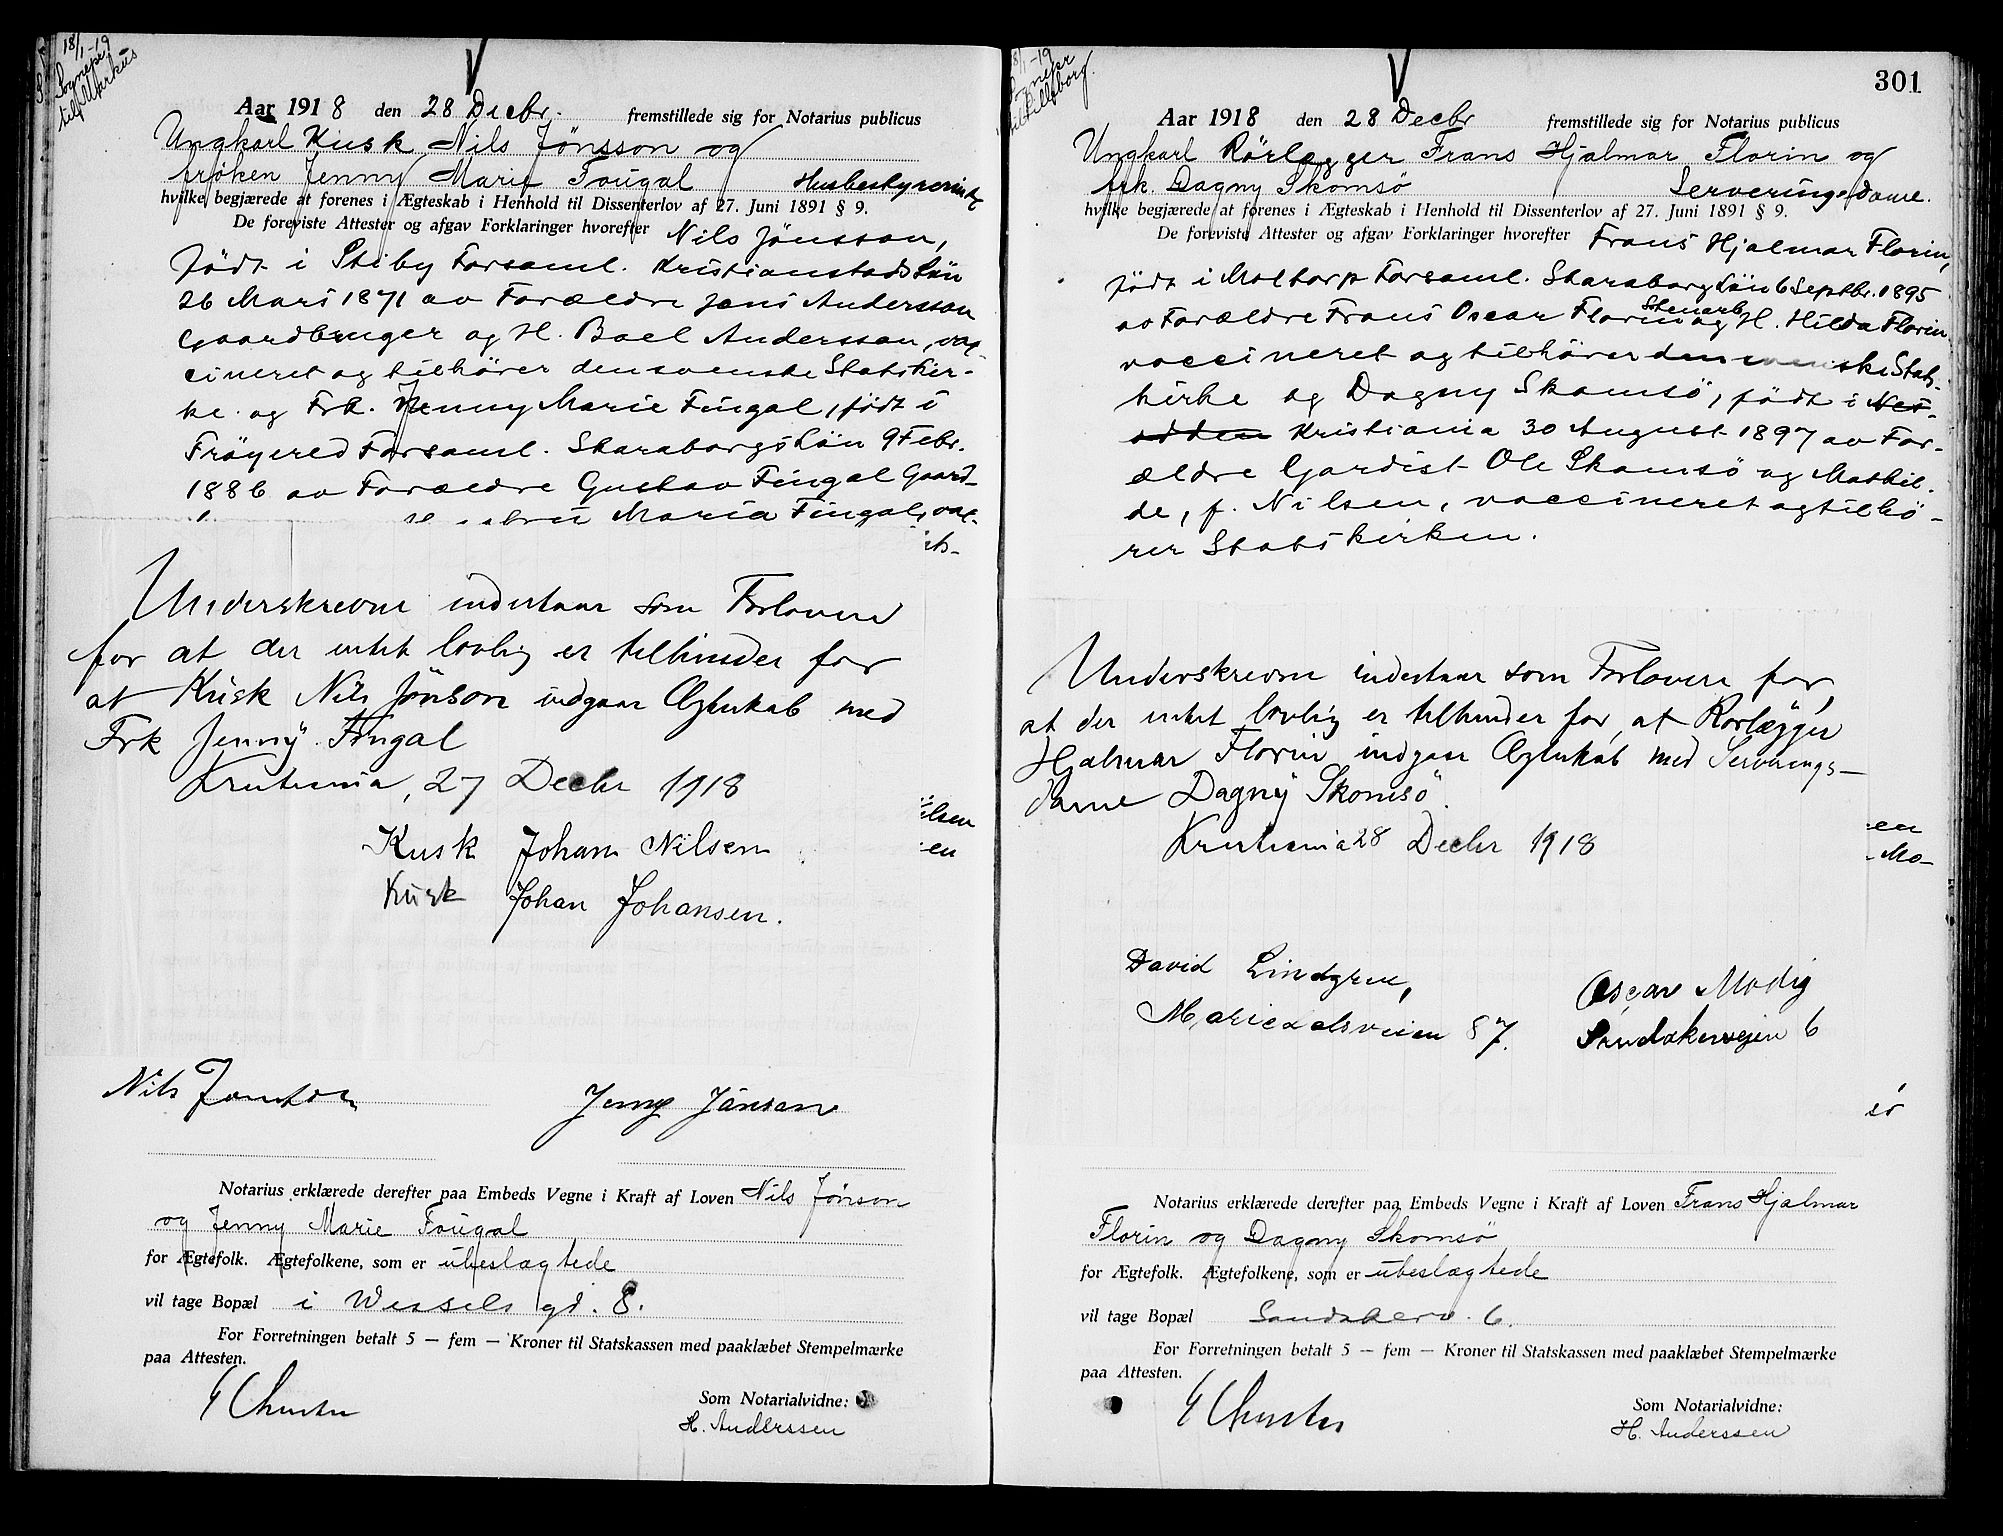 18/1-19
Sognepr
til
Aar 1918 den 28 Decbr. fremstillede sig for Notarius publicus
Ungkarl Kusk Nils Jönsson og
frøken Jenny Marie Fougal Husbestyrerinde
hvilke begjærede at forenes i Ægteskab i Henhold til Dissenterlov af 27. Juni 1891 § 9.
De foreviste Attester og afgav Forklaringer hvorefter Nils Jönsson,
födt i Stiby Forsaml. Kristianstads Län
26 Mars 1871 av Forældre Jöns Andersson
Gaardbruger og H. Boel Andersson, vac-
cineret og tilhörer den svenske Statskir-
ke. og Frk. Jenny Marie Fingal, födt i
Fröjered Forsaml. Skaraborgs Län 9 Febr.
1886 av Forældre Gustav Fingal Gaard-
Maria Fingal, vac-
ts-
Underskrevne indestaar som Forlovere
for at der intet lovlig er tilhinder for
at Kusk Nils Jönson indgaar Ægteskab med
Frk Jenny Fingal
Kristiania, 27 Decbr 1918
ilsen
Kusk Johan Nilsen
en
Kusk Johan Johansen.
Nils Jönsson Jenny Jönsson
Notarius erklærede derefter paa Embeds Vegne i Kraft af Loven Nils Jönson
og Jenny Marie Fougal
for Ægtefolk. Ægtefolkene, som er ubeslægtede
vil tage Bopæl i Wessels gd. 8.
For Forretningen betalt 5 — fem — Kroner til Statskassen med paaklæbet Stempelmærke
paa Attesten.
Som Notarialvidne:
H. Anderssen
8/1-19
301
Aar 1918 den 28 Decbr fremstillede sig for Notarius publicus
Ungkarl Rörlegger Frans Hjalmar Florin og
frk. Dagny Skomsö Serveringsdame.
hvilke begjærede at forenes i Ægteskab i Henhold til Dissenterlov af 27. Juni 1891 § 9.
De foreviste Attester og afgav Forklaringer hvorefter Frans Hjalmar Florin,
födt i Moltorp Forsaml. Skaraborg Län 6 Septbr. 1895
Stenarb
av Forældre Frans Oscar Florin og H. Hilda Florin
vaccineret og tilhörer den svenske Stats-
kirke og Dagny Skomsö, födt i Nes-
odden Kristiania 30 August 1897 av For-
ældre Gardist Ole Skomsö og Mathil-
de, f. Nilsen, vaccineret og tilhö-
rer Statskirken.
Underskrevne indestaar som Forlovere for,
at der intet lovlig er tilhinder for, at Rørlægger
Hjalmar Florin indgaar Ægteskab med Serverings-
dame Dagny Skomsö.
Kristiania 28 Decbr 1918
en
Mo-
David Lindgren, Oscar Modig
Maridalsveien 87. Sandakervejen 6
sö
Notarius erklærede derefter paa Embeds Vegne i Kraft af Loven Frans Hjalmar
Florin og Dagny Skomsö
for Ægtefolk. Ægtefolkene, som er ubeslægtede
vil tage Bopæl Sandakerv. 6.
For Forretningen betalt 5 — fem — Kroner til Statskassen med paaklæbet Stempelmærke
paa Attesten.
Som Notarialvidne:
H. Anderssen